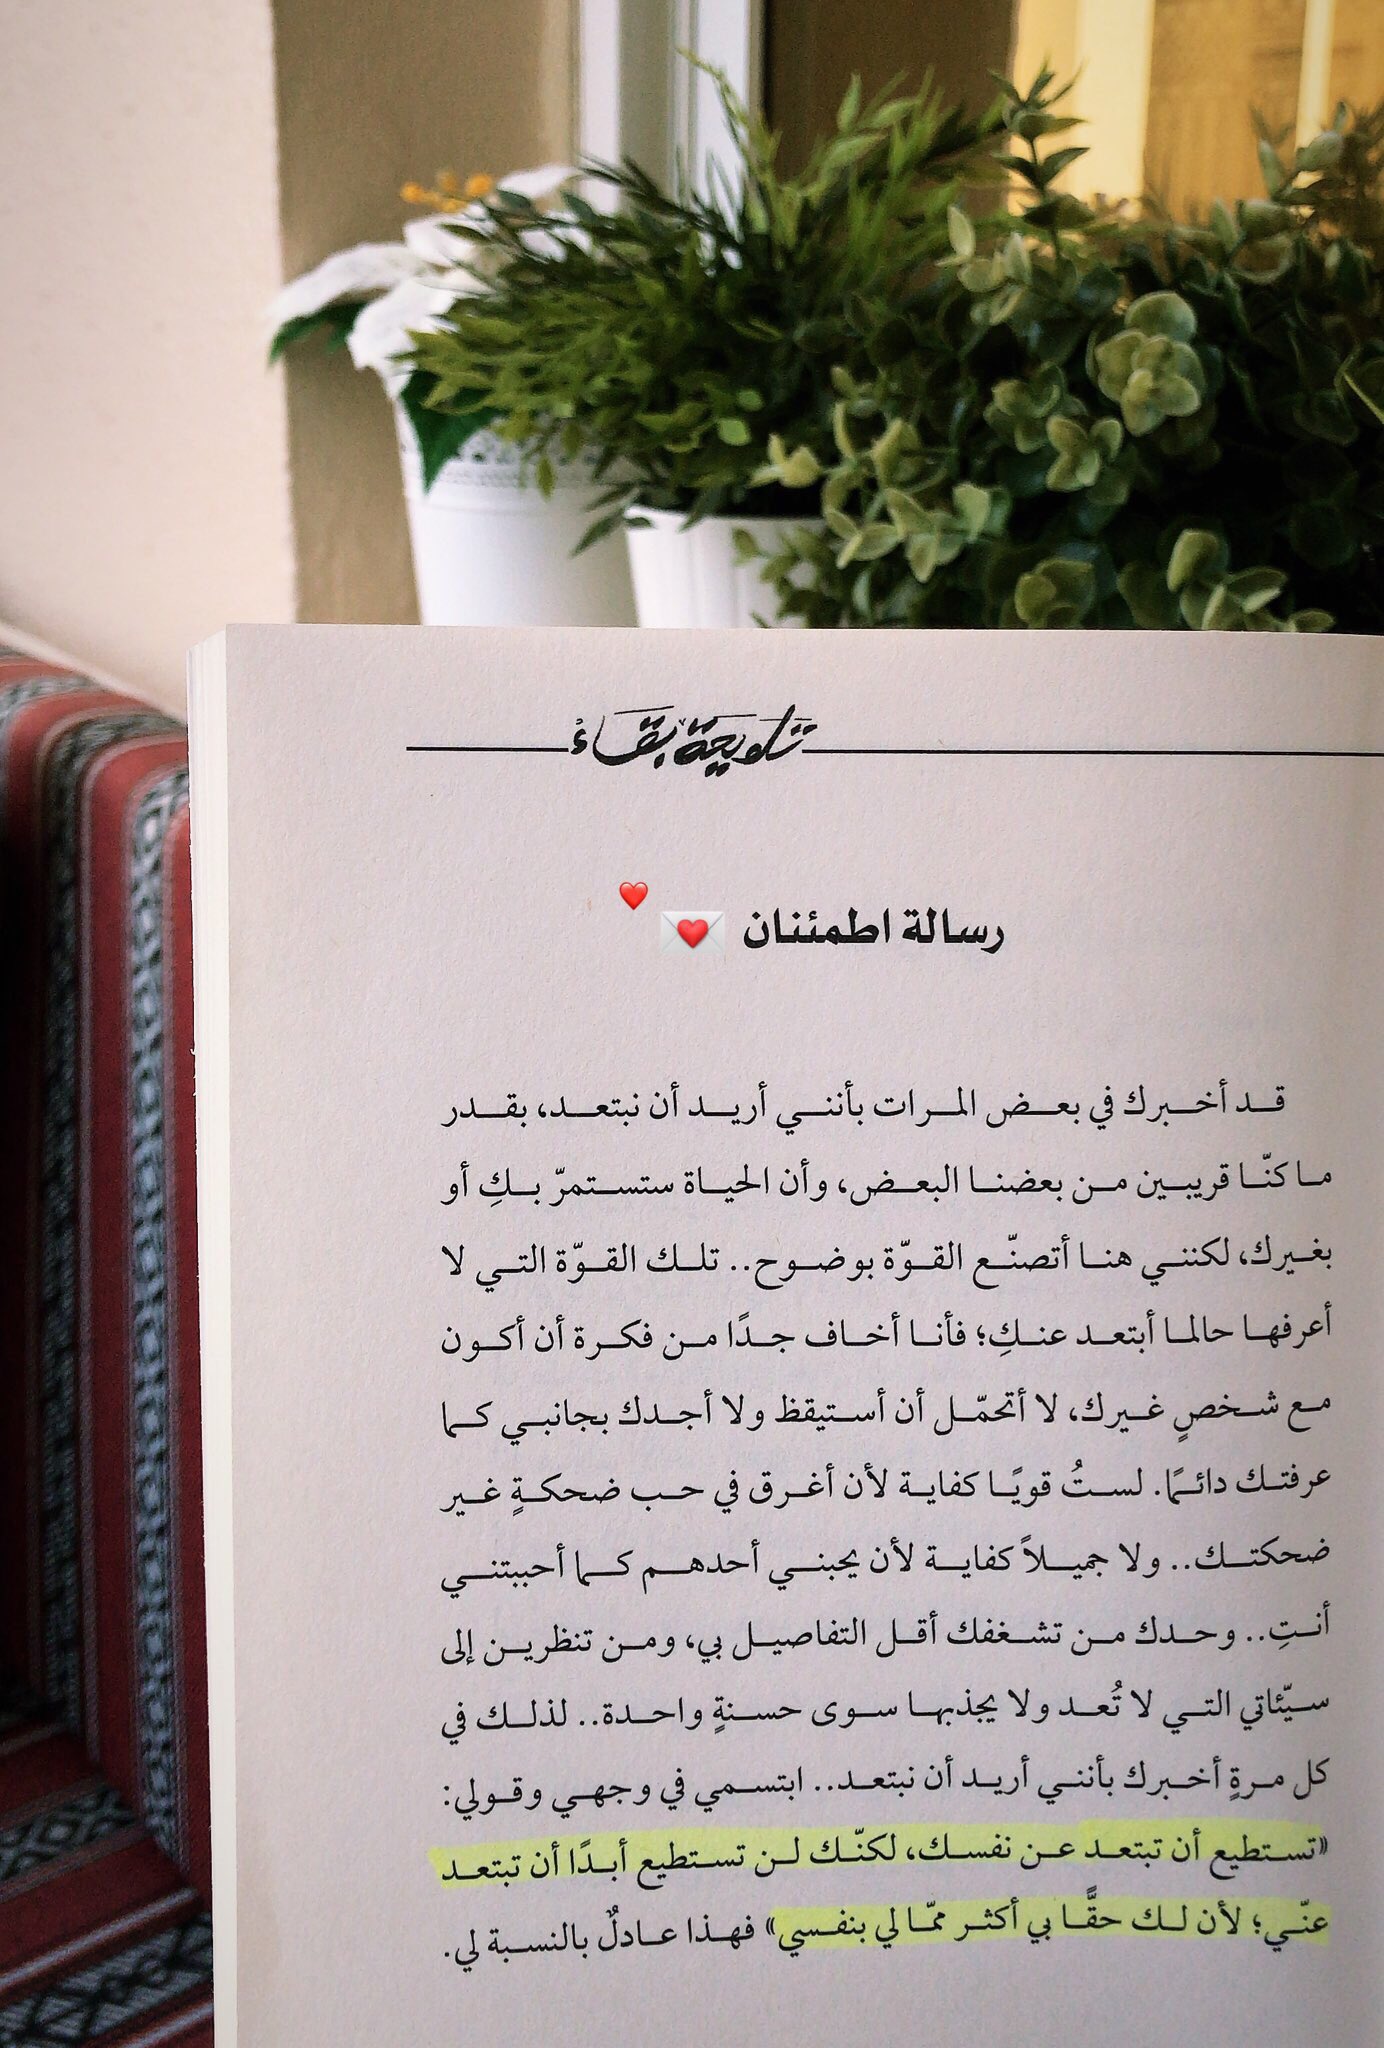 تلويحة بقاء
رسالة اطمئنان
قد أخبرك في بعض المرات بأنني أريد أن نبتعد، بقدر
ما كنّا قريبين من بعضنا البعض، وأن الحياة ستستمرّ بكِ أو
بغيرك، لكنني هنا أتصنّع القوّة بوضوح.. تلك القوّة التي لا
أعرفها حالما أبتعد عنكِ؛ فأنا أخاف جدًا من فكرة أن أكون
مع شخصٍ غيرك، لا أتحمّل أن أستيقظ ولا أجدك بجانبي كما
عرفتك دائمًا. لستُ قويًا كفاية لأن أغرق في حب ضحكةٍ غير
ضحكتك.. ولا جميلاً كفاية لأن يحبني أحدهم كما أحببتني
أنتِ.. وحدك من تشغفك أقل التفاصيل بي، ومن تنظرين إلى
سيّئاتي التي لا تُعد ولا يجذبها سوى حسنةٍ واحدة.. لذلك في
كل مرةٍ أخبرك بأنني أريد أن نبتعد.. ابتسمي في وجهي وقولي:
«تستطيع أن تبتعد عن نفسك، لكنّك لن تستطيع أبدًا أن تبتعد
عنّي؛ لأن لك حقًّا بي أكثر ممّا لي بنفسي» فهذا عادلٌ بالنسبة لي.